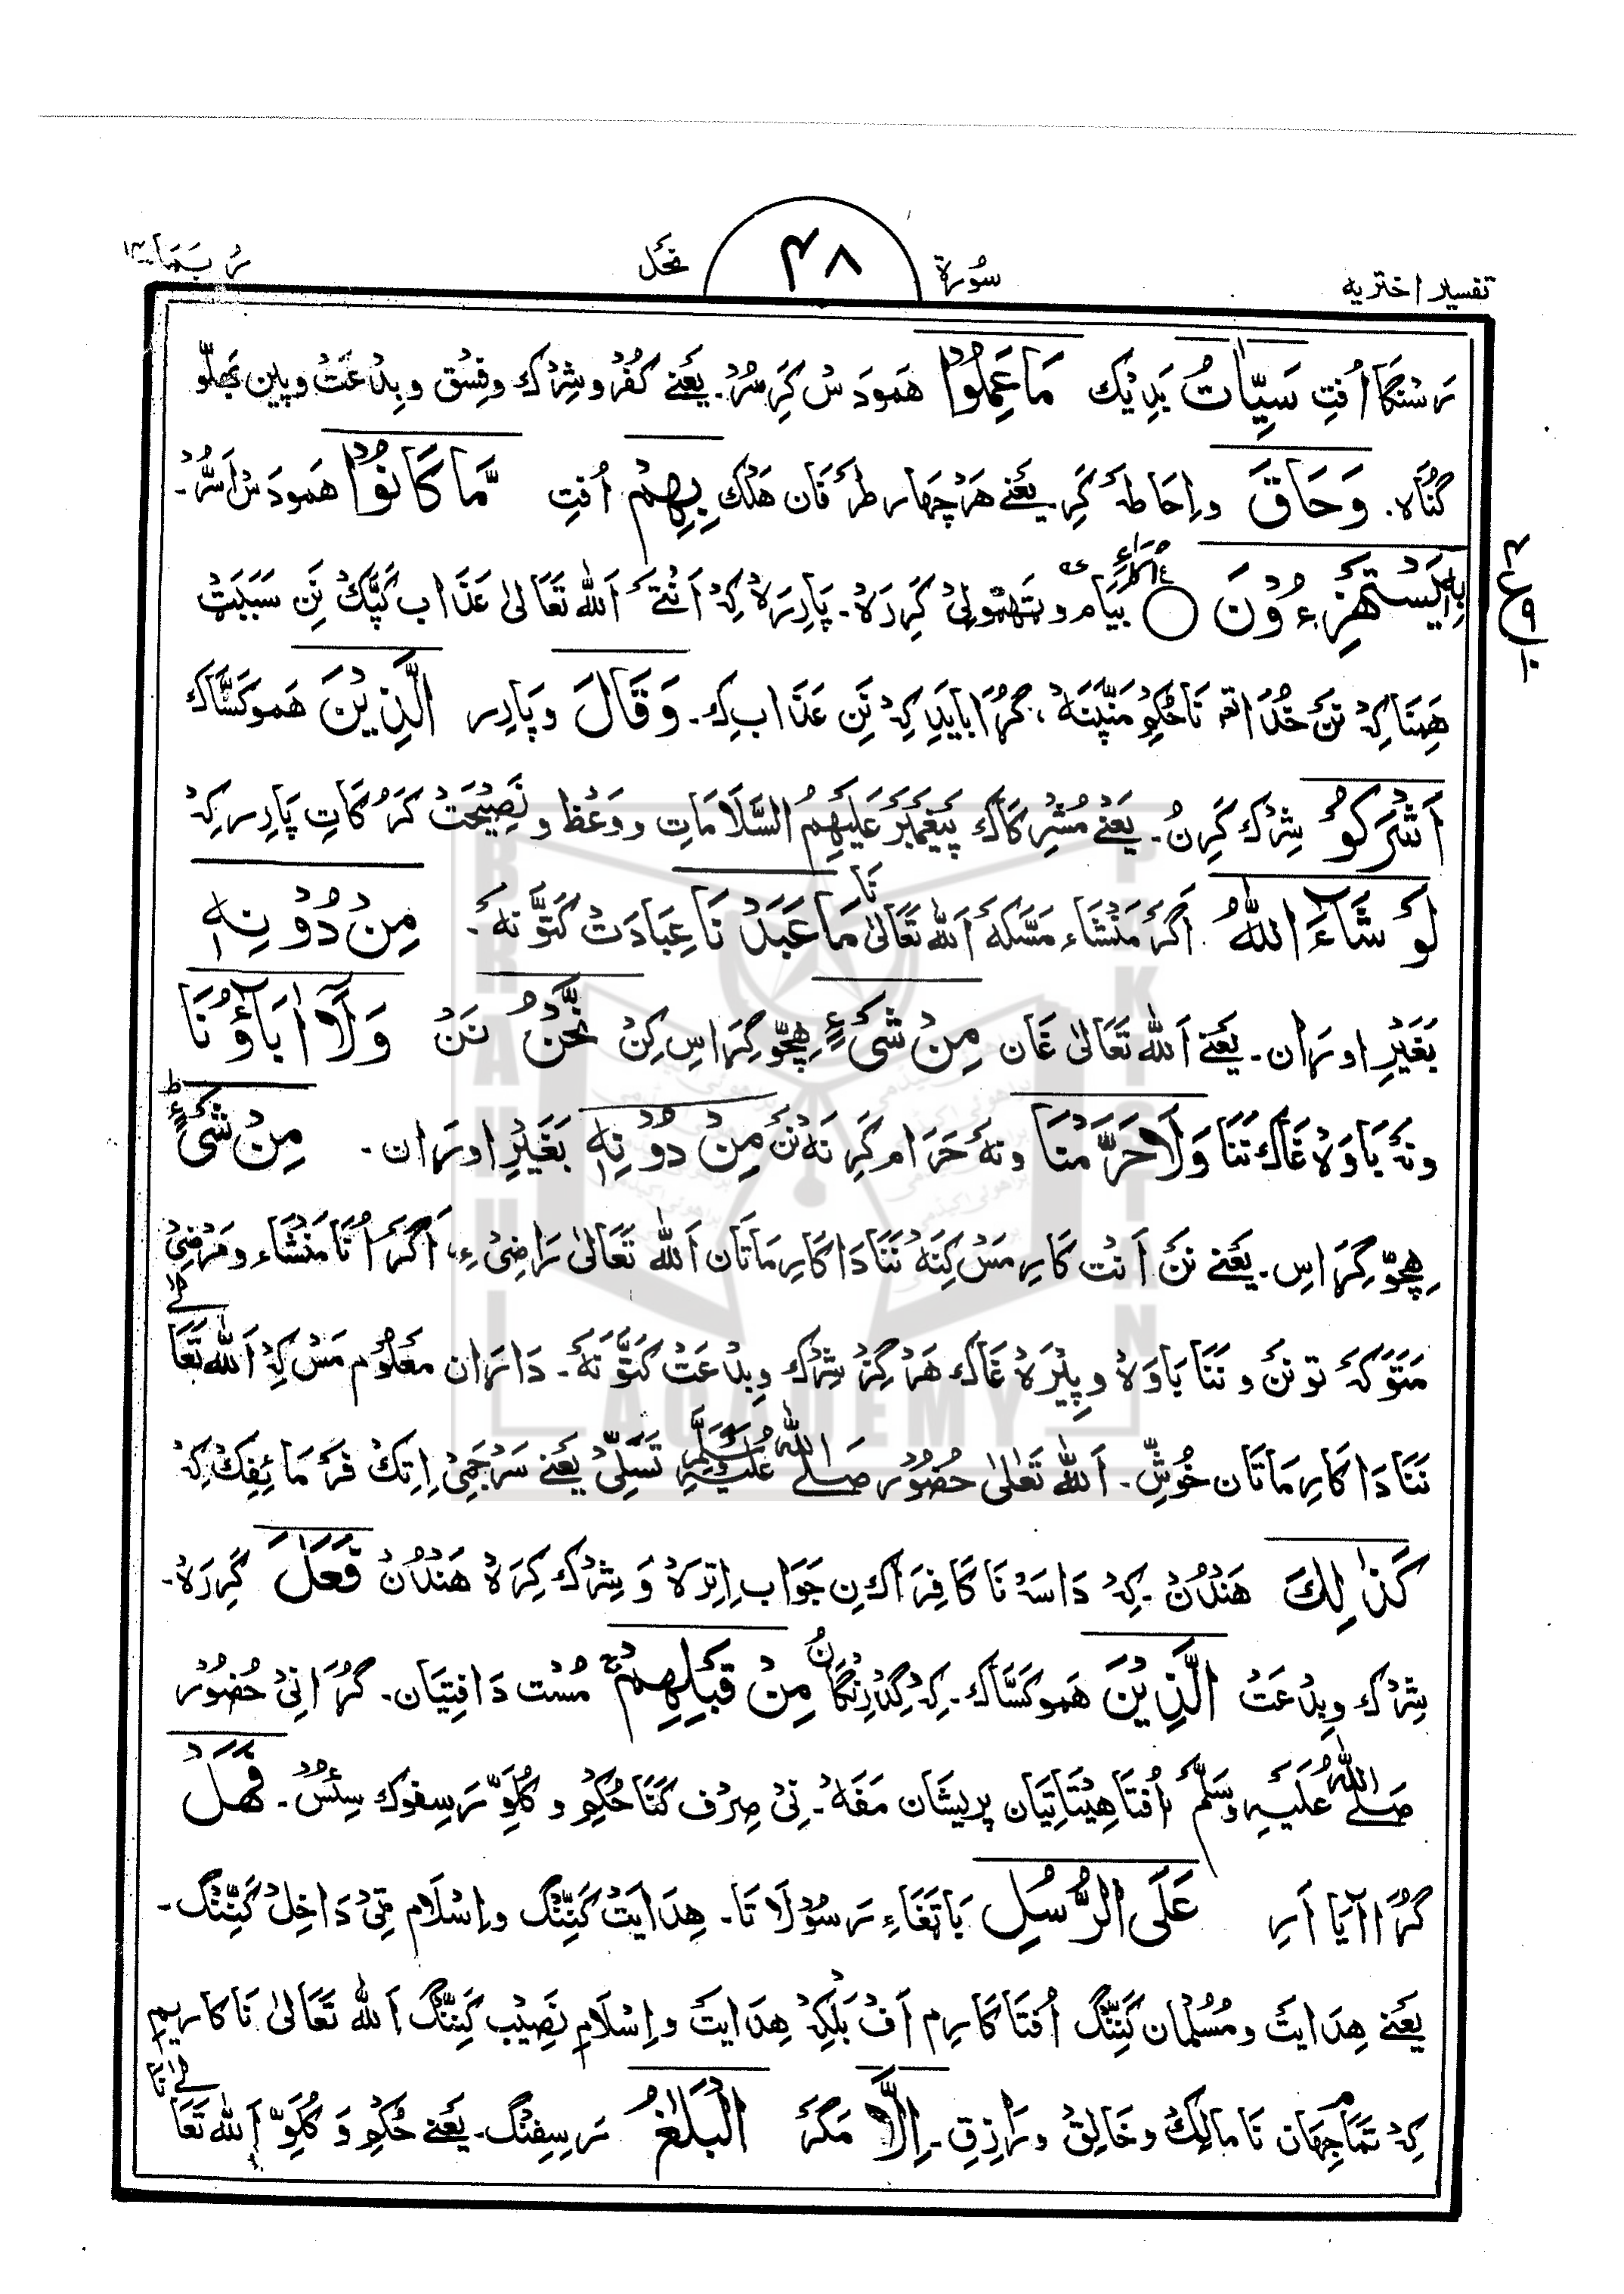 تفسیر اختریہ
سُورۃ
۴۸
نحل
رُبَمَا ۱۴
رَسْنگا اُفتِ سَیِّاٰتُ بَدِیْک مَاعَمِلُوْا ھَمودَ سْ کَرِسُرْ۔ یَعْنے کُفْر و شِرْک وفِسْق و بِدْعَتْ وپین بَھلّو
گُنَاہ۔ وَحَاقَ و اِحَاطہَ کَرِ یَعْنے ھَرْ چہار طرَفَان ھَلْک بِھِمْ اُفتِ مَّا کَانُوْا ھَمودَ سْ اَسُّرْ۔
بِہٖ یَسْتَھْزِءُوْنَ ○ وتَھْتولِیْ کَرِدَہْ۔ پَارِرَہْ کِہْ اَنْتَے اَللہ تَعَالیٰ عَذَاب کَپَّکْ نَنِ سَبَبَتْ
ھِنَا کِہْ نَنَ خُدَا نَا حُکِم مَنِپَنَہْ، گُڑَا بایَدِ کِہْ نَنِ عَذَاب کِ۔ وَقَالَ وپَارِر الَّذِیْنَ ھَموکَسَّاک
اَشْرَکُوْ شِرْک کَرِنُ۔ یَعْنے مُشْرِکَاک پَیْغَمْبَرَ عَلَیْھِمُ السَّلَامَاتِ ووَعْظ و نَصِیْحَتْ کَرُکَاتِ پَارِر کِہْ
لَوْ شَآءَ اللّٰہُ اَگَرَ مَنْشَاء مَسَّکَہ اَللہ تَعَالیٰ نَا مَاعَبَدْنَا عِبَادَتْ کَتَوَّنَہ۔ مِنْ دُوْنِہٖ
بَغَیْرِ اورَان۔ یَعْنے اَللہ تَعَالیٰ غَان مِنْ شَیْءٍ ھِچّو گِرَاس کِنْ نَّحْنُ نَنْ وَلَآ اٰبَآؤُنَا
ونَہ بَاوَہ غَاک نَنَا وَلَا حَرَّمْنَا ونَہ حَرَام کَرِنَہ نَنْ مِنْ دُوْنِہٖ بَغَیْرِ اورَان۔ مِنْ شَیْءٍ ط
ھِچّو گِرَاس۔ یَعْنے نَنَ اَنْت کَارِم مَسْ کِنَہ نَنَا دَا کَارِ مَاتَان اَللہ تَعَالیٰ رَاضِیْ ءِ، اَگَرَ اُنَا مَنْشَاء ومَرْضِیْ
مَتَوَکَہَ تو نَنَ و نَنَا بَاوَہ و پِیْرَہ غَاک ھَرْگِزْ شِرْک وبِدْعَتْ کَتَوَّنَہ۔ دَارَان مَعْلُوم مَسْ کِہْ اَللہ تَعَالیٰ
نَنَا دَا کَارِ مَاتَان خُوشّ۔ اَللہ تَعَالیٰ حُضُوْر صَلَّے اللہُ عَلَیْہِ وَسَلَّمَ تَسَلِّیْ یَعْنے سَرْجَمِیْ اِتِک فَرْمَائِفِک کِہْ
کَذٰلِکَ ھَنْدُنْ۔ کِہْ دَاسَہ نَا کَافِرَاک نِ جَوَاب اِتِرَہْ وَ شِرْک کِرَہْ ھَنْدُنْ فَعَلَ کَرِدَہْ۔
شِرْک وبِدْعَتْ الَّذِیْنَ ھَموکَسَّاک۔ کِہْ گِدْرِنْگَانُ مِنْ قَبْلِھِمْ مُسْت دَافِتِیَان۔ گُڑَا نِیْ حُضُوْر
صَلَّے اللہُ عَلَیْہِ وَسَلَّمَ اُفتَا ھِیْتَاتِیَان پریشَان مَفَہْ۔ نِیْ صِرْف کَنَا حُکِم و کُلَوّ رَسِفوک سِئْسْ۔ فَھَلْ
گُڑَا آیَا اَرِ عَلَی الرُّسُلِ بَاتَغَاءِ رَسُوْلَا تَا۔ ھِدَایَتْ کَنِنْگ و اِسْلَام ٹِیْ دَاخِلْ کَنِنْگ۔
یَعْنے ھِدَایَتْ ومُسُلْمَان کَنِنْگ اُفتَا کَارِم اَفْ بَلْکِہْ ھِدَایَتْ و اِسْلَام نَصِیْب کَنِنْگ اَللہ تَعَالیٰ نَا کَارِیم
کِہْ تَمَام جِھَان نَا مالِکْ وخَالِقْ ورَازِق۔ اِلَّا مَگَرَ الْبَلٰغُ رَسِفِنْگ۔ یَعْنے حُکِم وَ کُلَوّ اَللہ تَعَالیٰ نَا